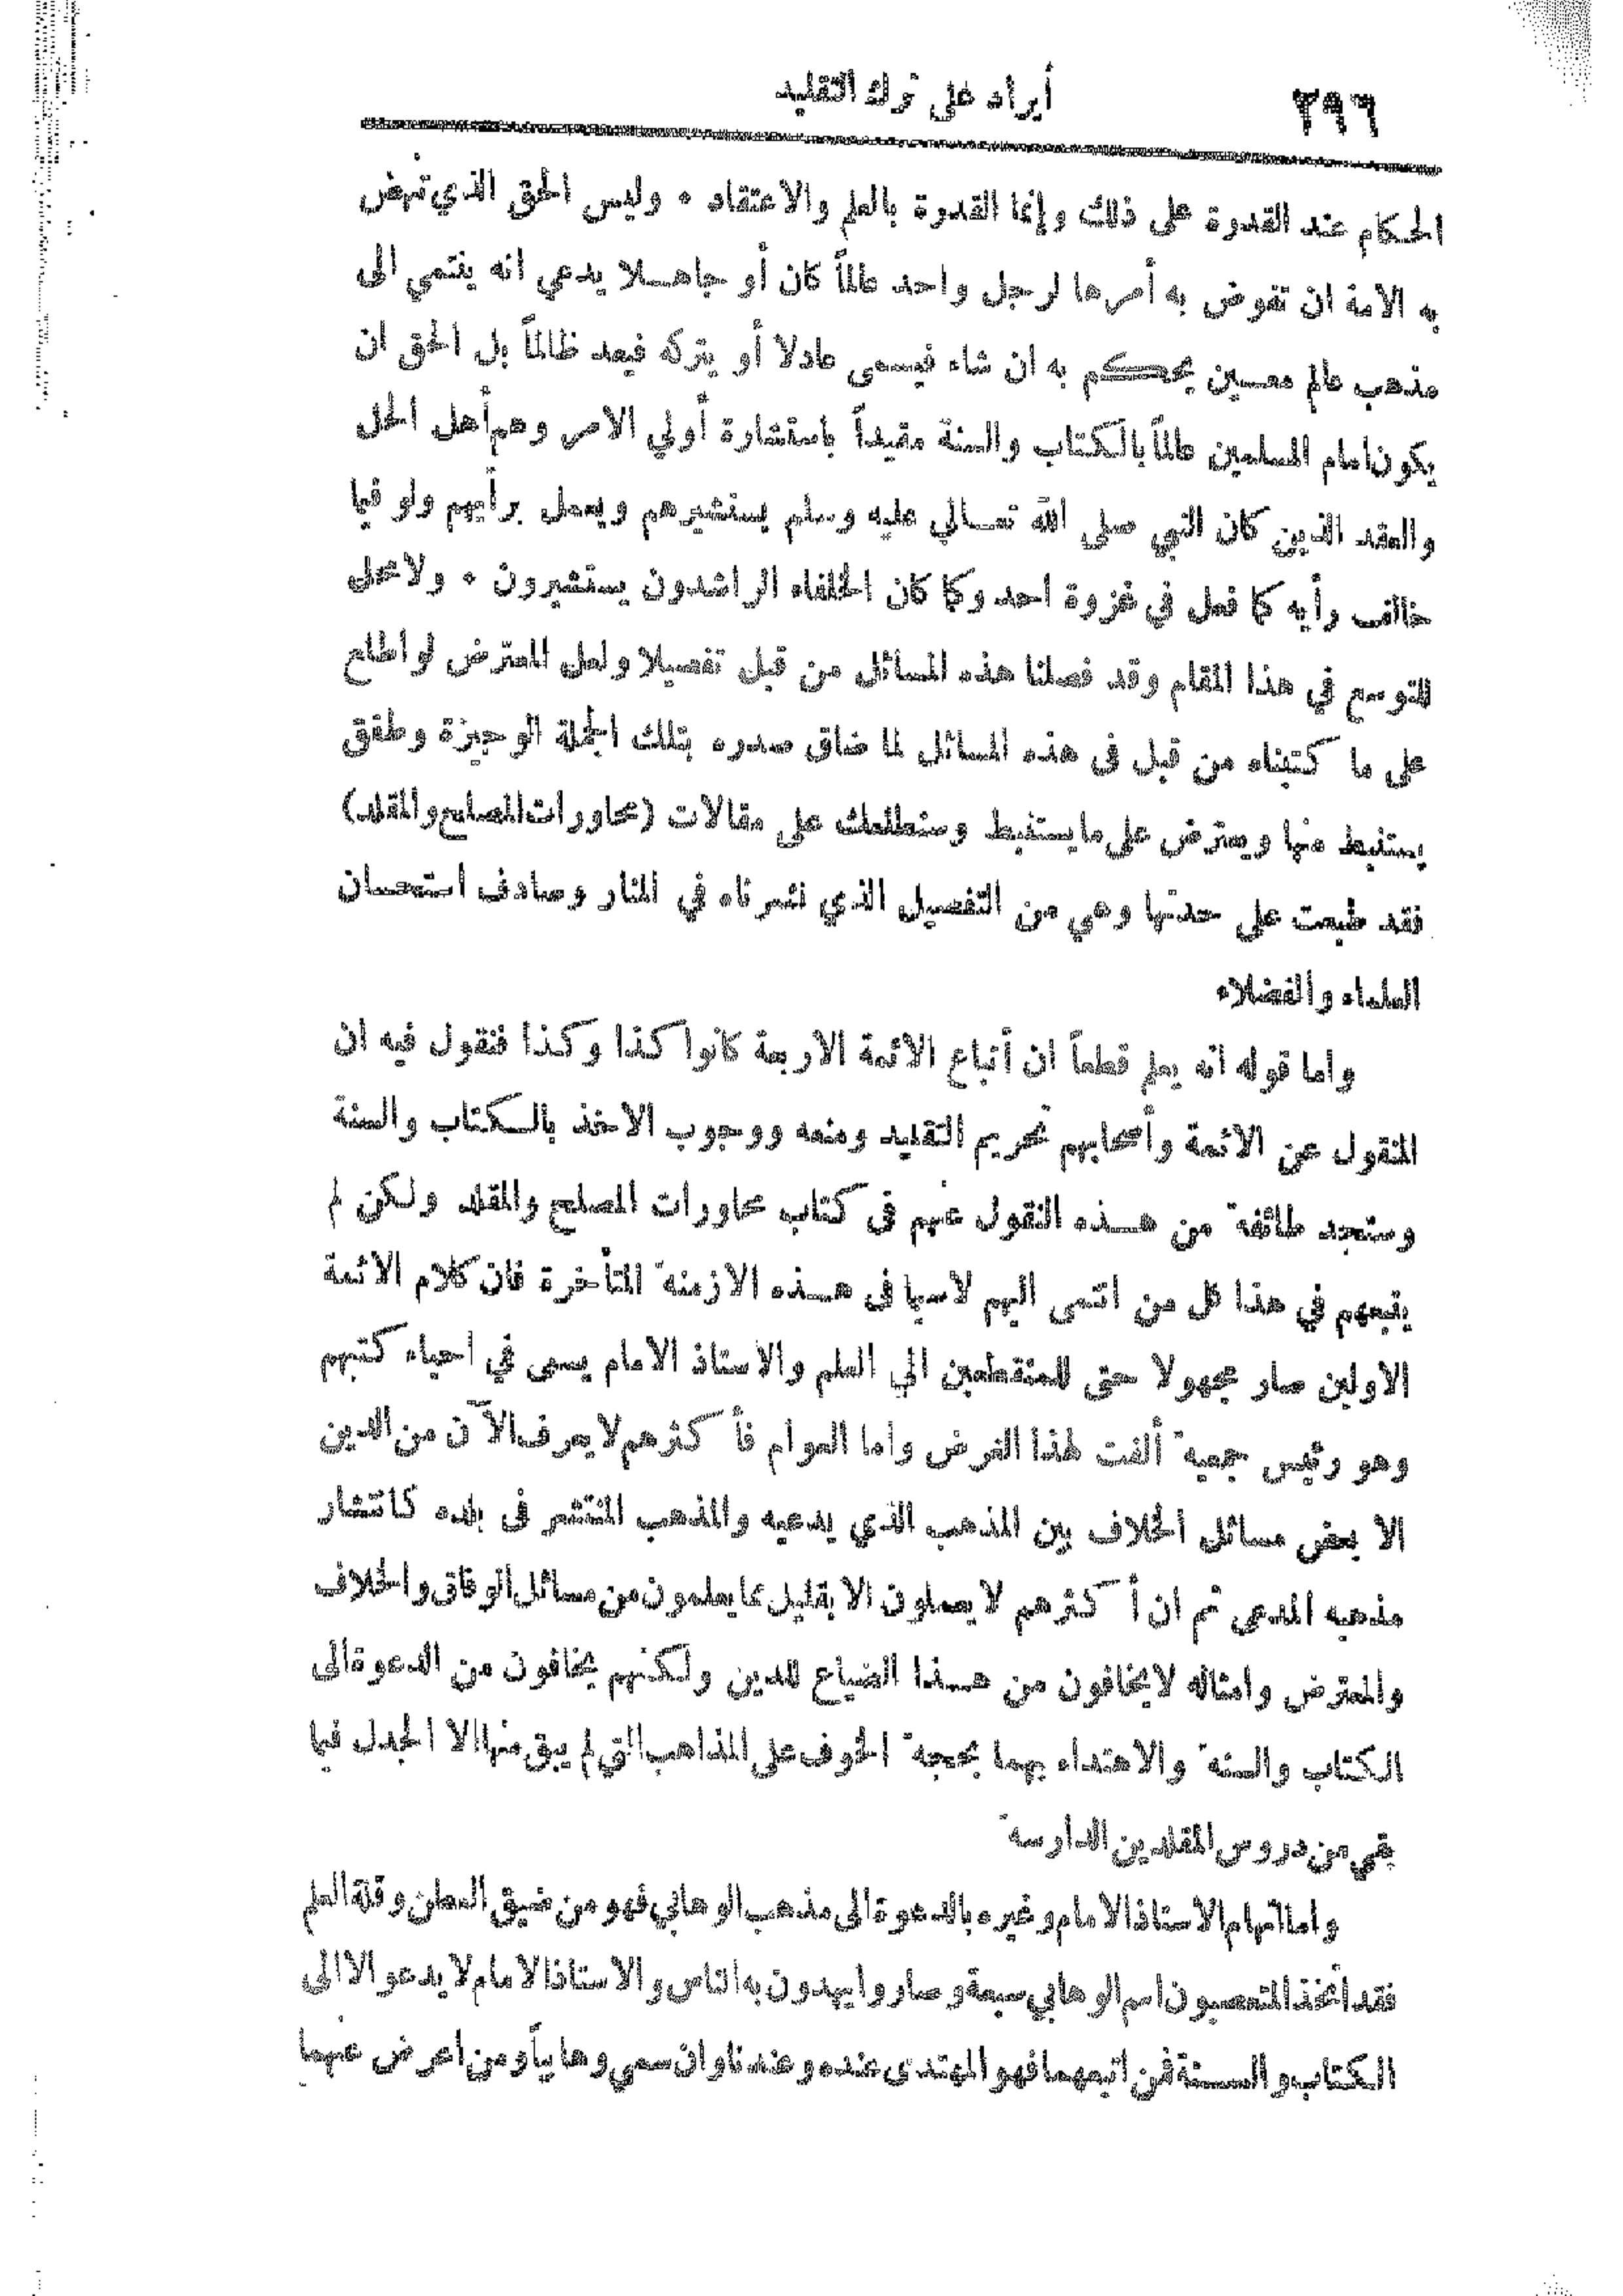 ٢٩٦
أيراد على ترك التقليد
الحكام عند القدرة على ذلك وإنما القدوة بالعلم والاعتقاد ٠ وليس الحق الذي تنهض
به الامة ان تفوض به أمرها لرجل واحد عالماً كان أو جاهلا يدعي انه ينتمي الى
مذهب عالم معين يحكم به ان شاء فيسمى عادلا أو يتركه فيعد ظالماً بل الحق ان
يكون امام المسلمين عالماً بالكتاب والسنة مقيداً باستشارة أولي الامر وهم أهل الحل
والعقد الذين كان النبي صلى الله تعالي عليه وسلم يستشيرهم ويعمل برأيهم ولو فيما
خالف رأيه كما فعل في غزوة احد وكما كان الخلفاء الراشدون يستشيرون ٠ ولا محل
للتوسع في هذا المقام وقد فصلنا هذه المسائل من قبل تفصيلا ولعل المعترض لو اطلع
على ما كتبناه من قبل فى هذه المسائل لما ضاق صدره بتلك الجملة الوجيزة وطفق
يستنبط منها ويعترض على ما يستنبط وسنطلعك على مقالات (محاورات المصلح والمقلد)
فقد طبعت على حدتها وهي من التفصيل الذي نشرناه في المنار وصادف استحسان
العلماء والفضلاء
واما قوله انه يعلم قطعاً ان أتباع الائمة الاربعة كانوا كذا وكذا فنقول فيه ان
المنقول عن الائمة وأصحابهم تحريم التقليد ومنعه ووجوب الاخذ بالكتاب والسنة
وستجد طائفة من هذه النقول عنهم فى كتاب محاورات المصلح والمقلد ولكن لم
يتبعهم في هذا كل من انتمى اليهم لاسيما فى هذه الازمنة المتأخرة فان كلام الائمة
الاولين صار مجهولا حتى للمنقطعين الي العلم والاستاذ الامام يسعى في احياء كتبهم
وهو رئيس جمعية ألفت لهذا الغرض واما العوام فأكثرهم لا يعرف الآن من الدين
الا بعض مسائل الخلاف بين المذهب الذي يدعيه والمذهب المنتشر فى بلده كانتشار
مذهبه المدعى ثم ان أكثرهم لا يعملون الا بقليل مما يعلمون من مسائل الوفاق والخلاف
والمعترض وامثاله لا يخافون من هذا الضياع للدين ولكنهم يخافون من الدعوة الى
الكتاب والسنة والاهتداء بهما بحجة الخوف على المذاهب التي لم يبق منها الا الجدل فيما
بقي من دروس المقلدين الدارسة
واما اتهام الاستاذ الامام وغيره بالدعوة الى مذهب الوهابي فهو من ضيق العطن وقلة العلم
فقد أتخذ المتعصبون اسم الوهابي سبعة وصاروا يهددون به الناس والاستاذ الامام لا يدعو الا الى
الكتاب والسنة فمن اتبعهما فهو المهتدى عنده وعندنا وان سمي وهابياً ومن أعرض عنهما